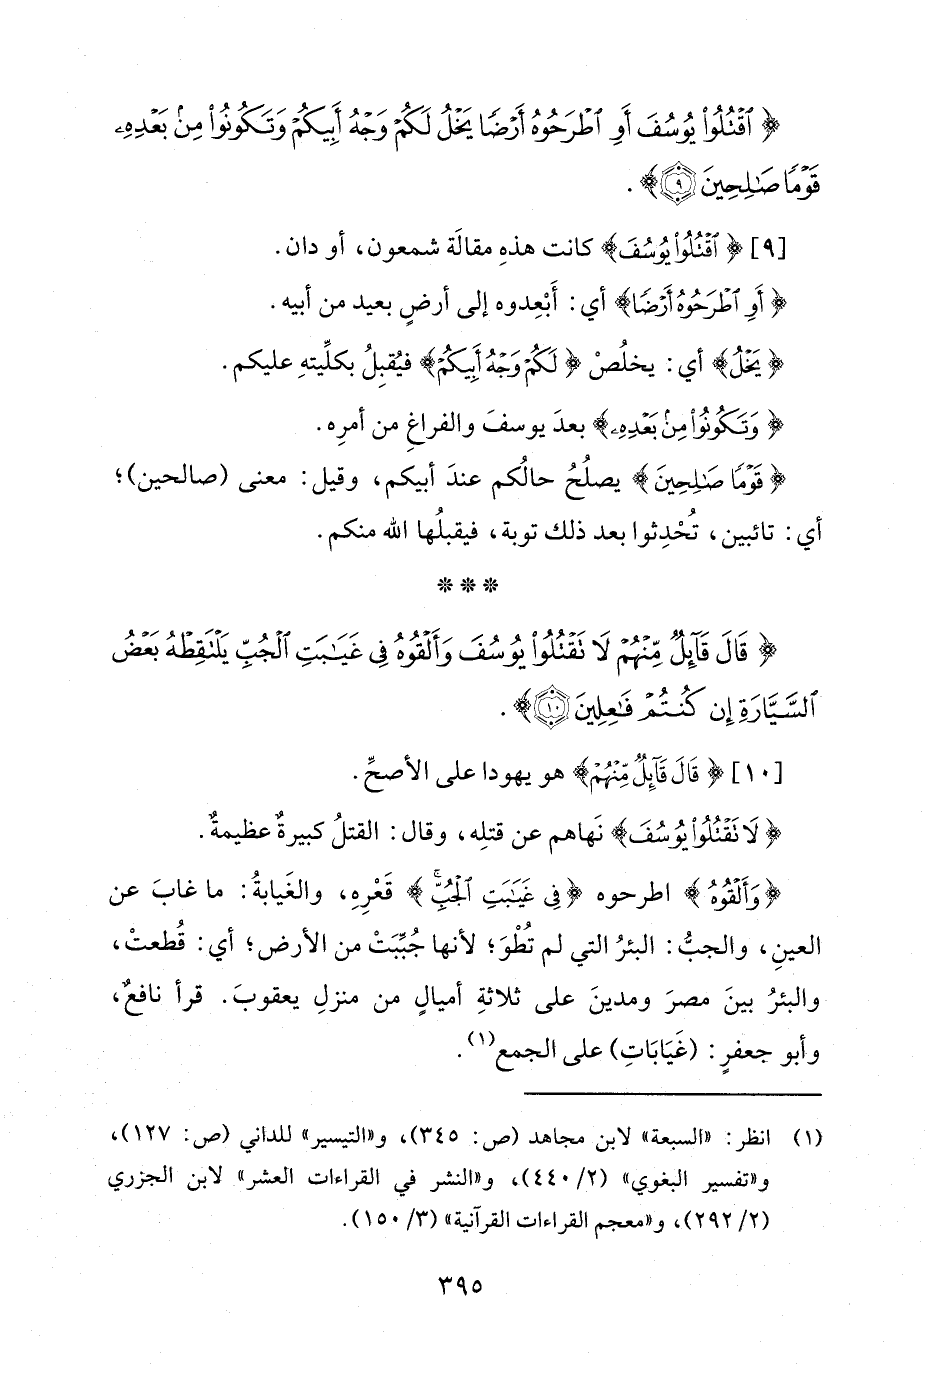 ﴿ ٱقْتُلُوا۟ يُوسُفَ أَوِ ٱطْرَحُوهُ أَرْضًا يَخْلُ لَكُمْ وَجْهُ أَبِيكُمْ وَتَكُونُوا۟ مِنۢ بَعْدِهِۦ
قَوْمًا صَـٰلِحِينَ ٩﴾ .
[٩] ﴿ ٱقْتُلُوا۟ يُوسُفَ﴾ كانت هذهِ مقالَة شمعون، أو دان.
﴿ أَوِ ٱطْرَحُوهُ أَرْضًا﴾ أي: أَبْعِدوه إلى أرضٍ بعيد من أبيه.
﴿ يَخْلُ﴾ أي: يخلُصْ ﴿ لَكُمْ وَجْهُ أَبِيكُمْ﴾ فيُقبِلُ بكلِّيتهِ عليكم.
﴿ وَتَكُونُوا۟ مِنۢ بَعْدِهِۦ﴾ بعدَ يوسفَ والفراغِ من أمرِه.
﴿ قَوْمًا صَـٰلِحِينَ ﴾ يصلُحُ حالُكم عندَ أبيكم، وقيل: معنى (صالحين)؛
أي: تائبين، تُحْدِثوا بعد ذلك توبة، فيقبلُها الله منكم.
* * *
﴿ قَالَ قَآئِلٌ مِّنْهُمْ لَا تَقْتُلُوا۟ يُوسُفَ وَأَلْقُوهُ فِى غَيَـٰبَتِ ٱلْجُبِّ يَلْتَقِطْهُ بَعْضُ
ٱلسَّيَّارَةِ إِن كُنتُمْ فَـٰعِلِينَ ١٠﴾ .
[١٠] ﴿ قَالَ قَآئِلٌ مِّنْهُمْ﴾ هو يهودا على الأصحِّ.
﴿ لَا تَقْتُلُوا۟ يُوسُفَ﴾ نَهاهم عن قتلِه، وقال: القتلُ كبيرةٌ عظيمةٌ.
﴿ وَأَلْقُوهُ ﴾ اطرحوه ﴿ فِى غَيَـٰبَتِ ٱلْجُبِّ ﴾ قَعْرِهِ، والغَيابةُ: ما غابَ عن
العينِ، والجبُّ: البئرُ التي لم تُطْوَ؛ لأنها جُبِّبَتْ من الأرض؛ أي: قُطعتْ،
والبئرُ بينَ مصرَ ومدينَ على ثلاثةِ أميالٍ من منزلِ يعقوبَ. قرأ نافعٌ،
وأبو جعفرٍ: (غَيَابَاتِ) على الجمع(١).
(١) انظر: «السبعة» لابن مجاهد (ص: ٣٤٥)، و«التيسير» للداني (ص: ١٢٧)،
و«تفسير البغوي» (٢/ ٤٤٠)، و«النشر في القراءات العشر» لابن الجزري
(٢/ ٢٩٢)، و«معجم القراءات القرآنية» (٣/ ١٥٠).
٣٩٥